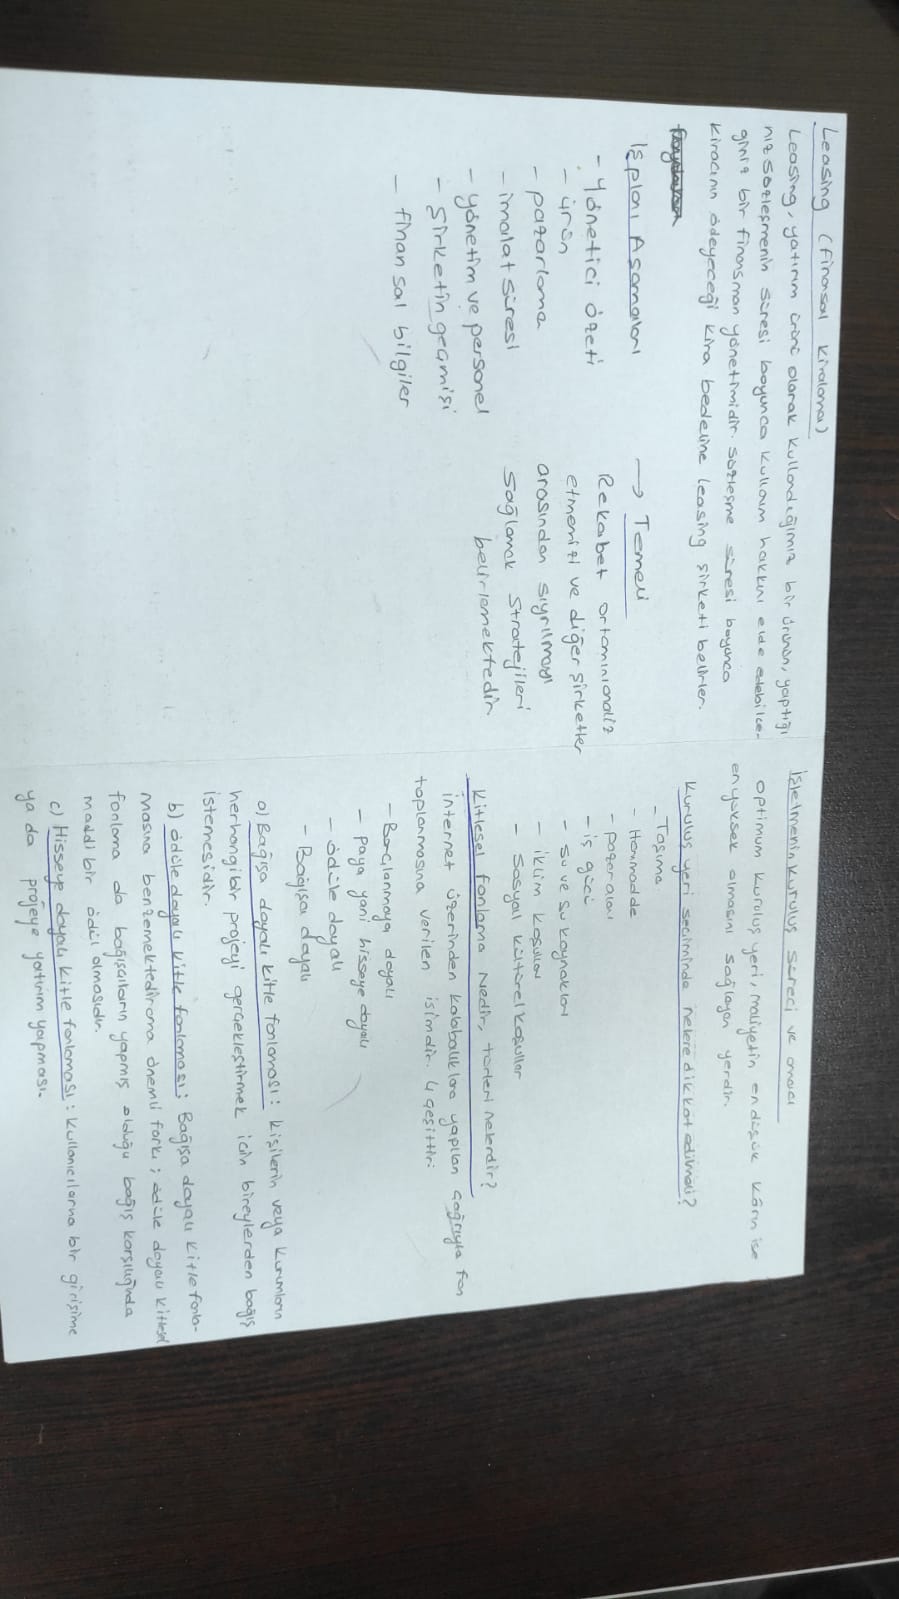 Leasing (finansal Kiralama)
Leasing, yatırım ürünü olarak kullandığımız bir ürünün, yaptığı
nız sözleşmenin süresi boyunca kullanım hakkını elde edebilce-
giniz bir finansman yönetimidir. sözleşme süresi boyunca
kiracının ödeyeceği kira bedeline leasing şirketi belirler.
İşplanı Aşamaları
- Yönetici özeti
- ürün
- pazarlama
- imalat süresi
- yönetim ve personel
- şirketin geçmişi
- finansal bilgiler
→ Temeli
Rekabet ortamınıanaliz
etmemizi ve diğer şirketler
arasından sıyrılmayı
sağlamak stratejileri
belirlemektedir.
İşletmenin kuruluş süreci ve amacı
optimum kuruluş yeri, maliyetin en düşük kârın ise
en yüksek olmasını sağlayan yerdir.
Kuruluş yeri seçiminde nelere dikkat edilmeli?
- Taşıma
- Hammadde
- pazar alanı
- iş gücü
- su ve su kaynakları
- iklim koşulları
- Sosyal kültürel koşullar
Kitlesel fonlama Nedir, türleri nelerdir?
internet üzerinden kalabalıklara yapılan çağrıyla fon
toplanmasına verilen isimdir. 4 çeşittir:
- Borçlanmaya dayalı
- paya yani hisseye dayalı
- ödüle dayalı
- Bağışa dayalı
a) Bağışa dayalı kitle fonlaması: kişilerin veya kurumların
herhangibir projeyi gerçekleştirmek için bireylerden bağış
istemesidir.
b) ödüle dayalı kitle fonlaması; Bağışa dayalı kitle fonla-
masına benzemektedirama önemli farkı; ödüle dayalı kitlesel
fonlama da bağışçıların yapmış olduğu bağış karşılığında
maddi bir ödül olmasıdır.
c) Hisseye dayalı kitle fonlaması: kullanıcılarına bir girişime
ya da projeye yatırım yapması.